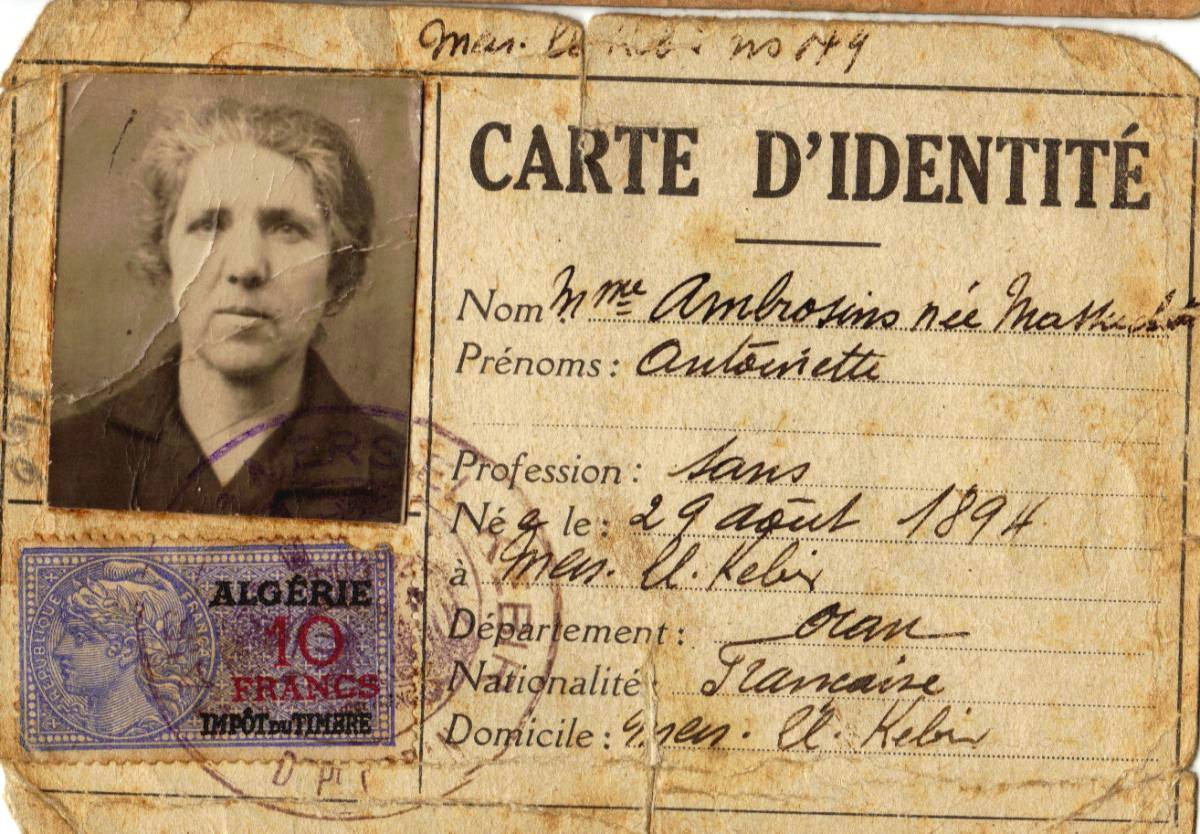 Mers. El. Kebir
CARTE D'IDENTITÉ
Nom Mme Ambrosino née
Prénoms : Antoinette
Profession : sans
Née le : 29 août 1894
à Mers. El. Kebir
Département : Oran
Nationalité Francaise
Domicile : Mers. El. Kebir
RÉPUBLIQUE FRANÇAISE
ALGÉRIE
10
FRANCS
IMPÔT DU TIMBRE